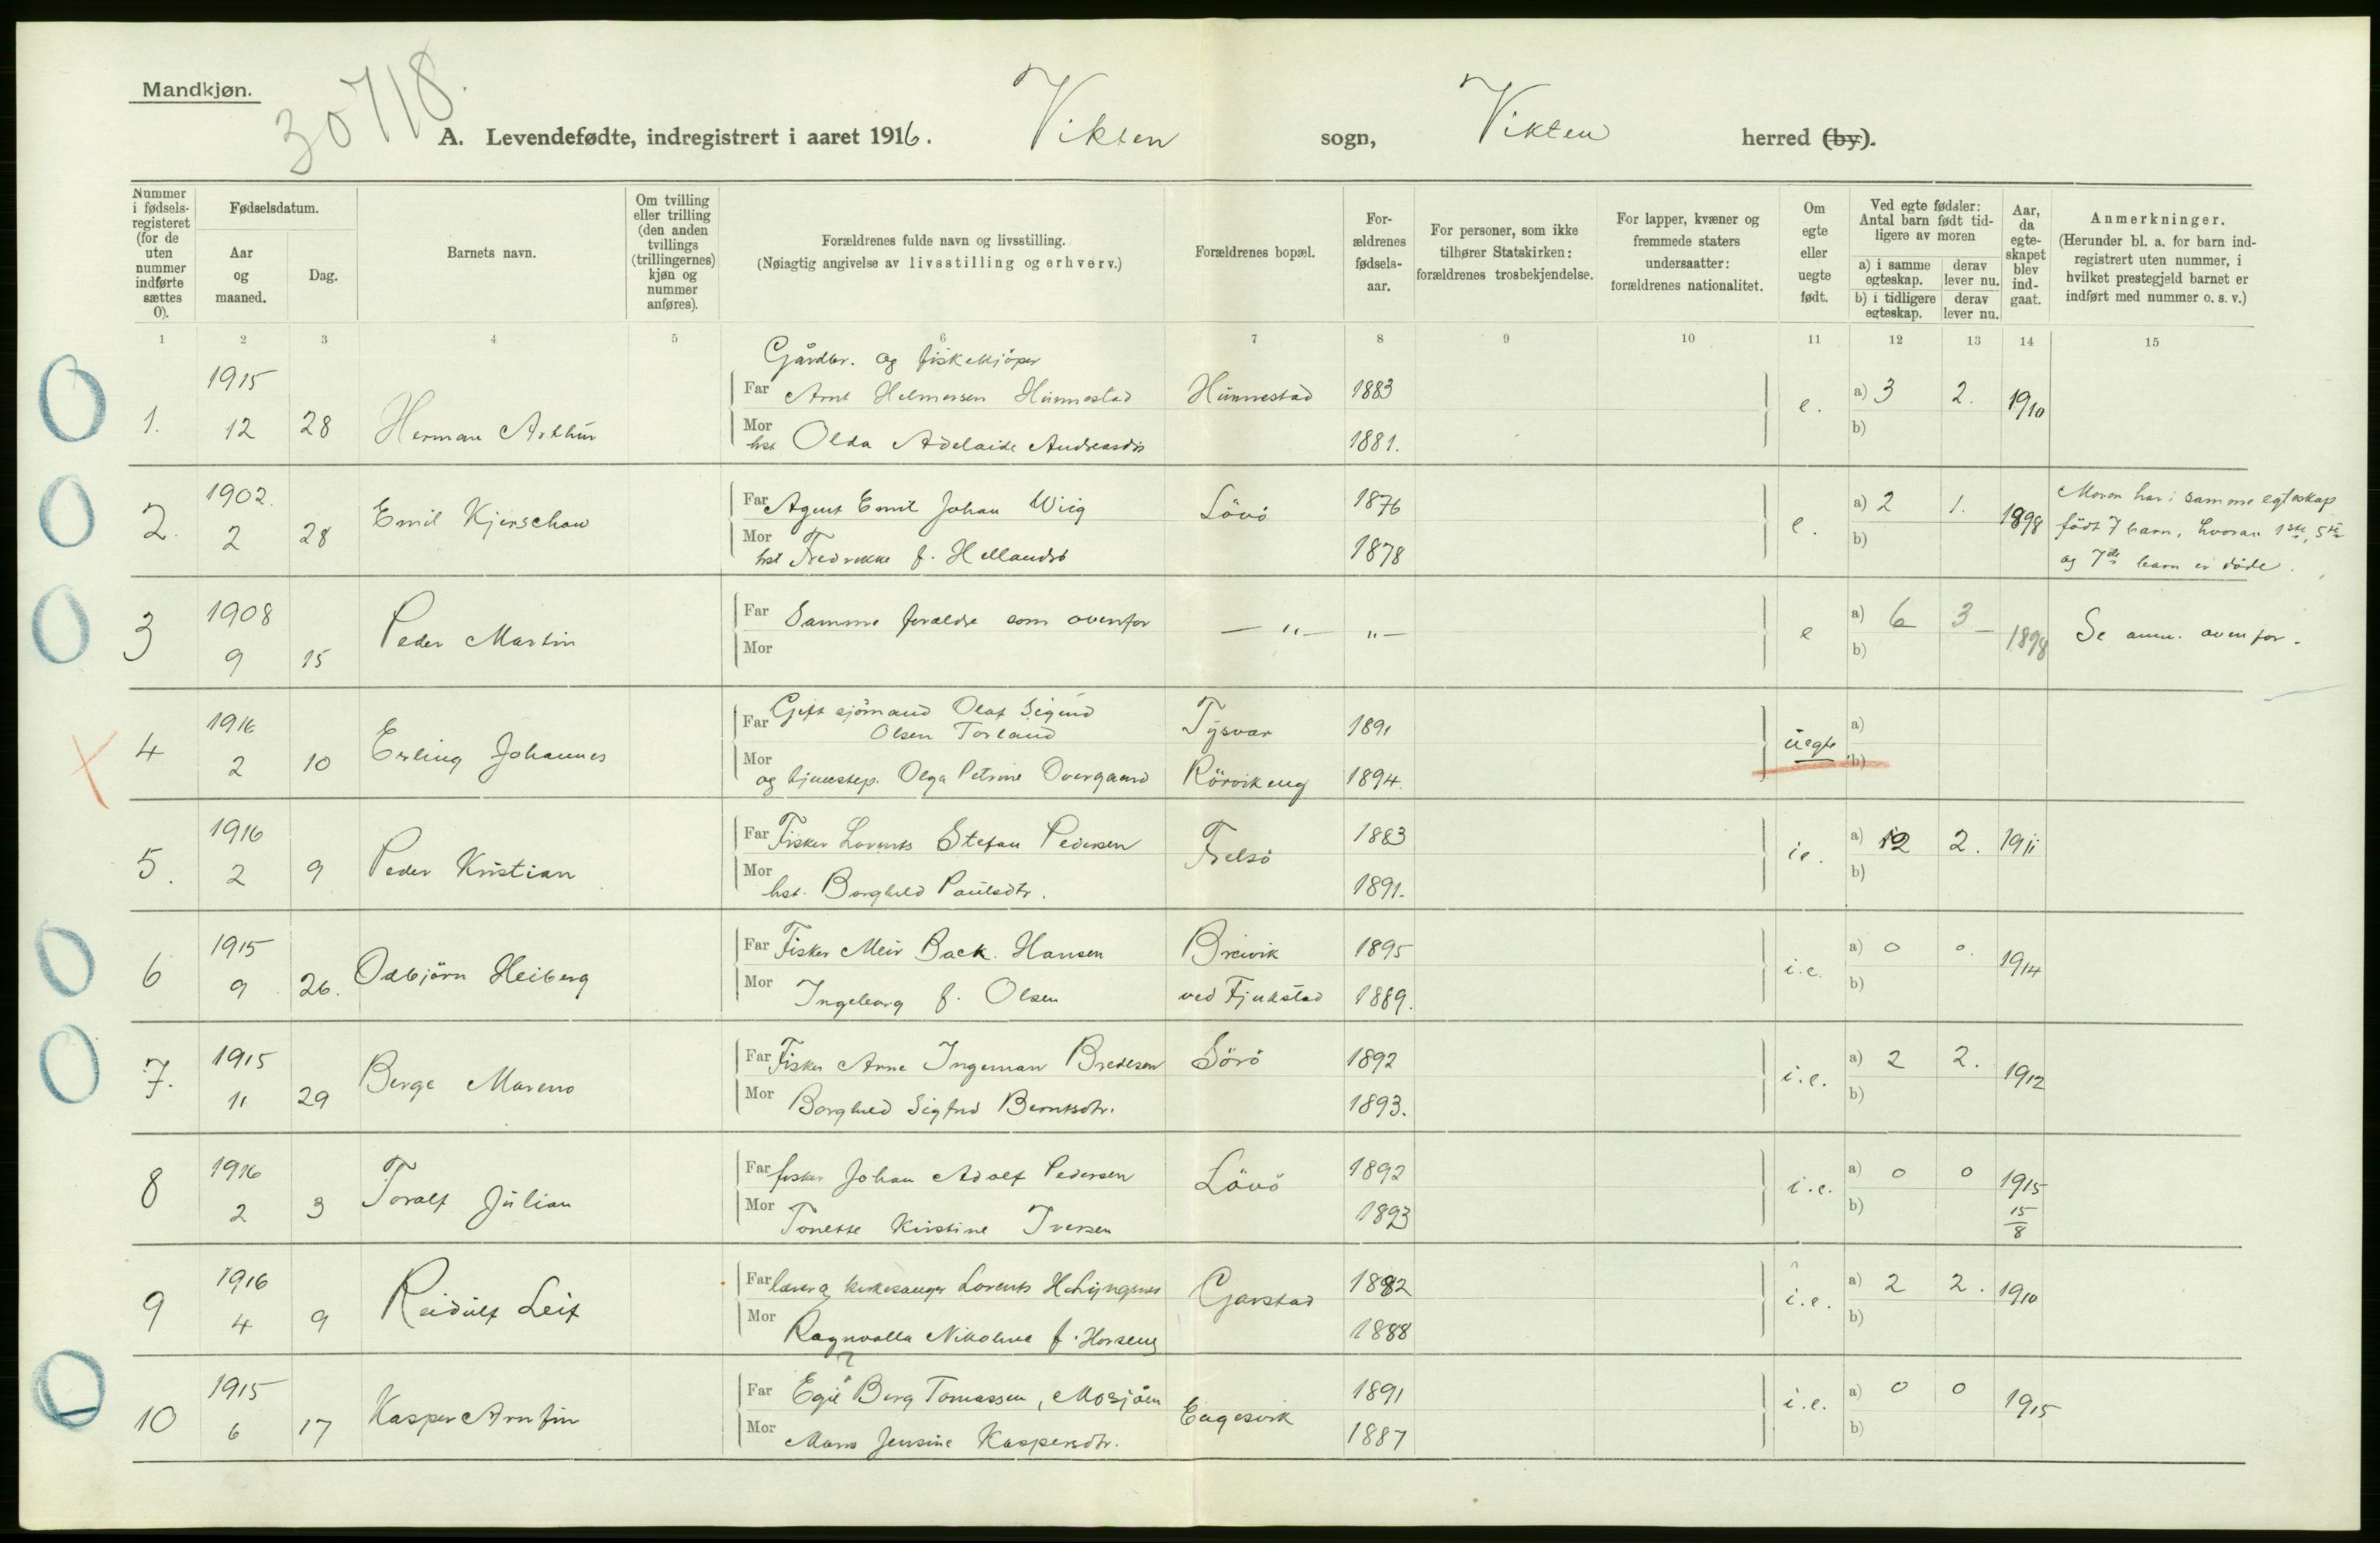 Mandkjøn.
30718.
A. Levendefødte, indregistrert i aaret 1916. Vikten sogn, Vikten herred (by).
Nummer i fødselsregisteret (for de uten nummer indførte sættes 0).
Fødselsdatum.
Aar og maaned.
Dag.
Barnets navn.
Om tvilling eller trilling (den anden tvillings (trillingernes) kjøn og nummer anføres).
Forældrenes fulde navn og livsstilling.
(Nøiagtig angivelse av livsstilling og erhverv.)
Forældrenes bopæl.
Forældrenes fødselsaar.
For personer, som ikke tilhører Statskirken: forældrenes trosbekjendelse.
For lapper, kvæner og fremmede staters undersaatter: forældrenes nationalitet.
Om egte eller uegte født.
Ved egte fødsler: Antal barn født tidligere av moren
a) i samme egteskap.
derav lever nu.
b) i tidligere egteskap.
derav lever nu.
Aar, da egteskapet blev indgaat.
Anmerkninger.
(Herunder bl. a. for barn indregistrert uten nummer, i hvilket prestegjeld barnet er indført med nummer o. s. v.)
1 2 3 4 5 6 7 8 9 10 11 12 13 14 15
Gårdbr. og fiskekjöper
1915 Far Arnt Helmersen Hunnestad Hunnestad 1883 e. a) 3 2. 1910
1. 12 28 Herman Arthur Mor hst Olda Adelaide Andreasdtr 1881. b)
1902. Far Agent Emil Johan Wiig Lövö 1876 e. a) 2 1. 1898 Moren har i samme egteskap
2. 2 28 Emil Kjerschow Mor hst Fredrikke f. Hellandsö 1878 b) født 7 barn, hvorav 1ste, 5te
og 7de barn er döde.
1908 Far Samme forældre som ovenfor — " — " — e a) 6 3 1898 Se anm. ovenfor.
3 9 15 Peder Martin Mor b)
1916 Far Gift sjömand Olaf Sigurd
Olsen Torland Tysvær 1891 uegte a)
4 2 10 Erling Johannes Mor og tjenestep. Olga Petrine Overgaard Rörvik eng 1894. b)
1916 Far Fisker Lorents Stefan Pedersen Frelsö 1883 ie. a) 2 2. 1911
5. 2 9 Peder Kristian Mor hst. Borghild Paulsdtr. 1891. b)
1915 Far Fisker Meir Back. Hansen Breivik 1895 i.e. a) 0 0. 1914
6 9 26. Odbjörn Heiberg Mor Ingeborg f. Olsen ved Fjukstad 1889. b)
1915 Far Fisker Arne Ingeman Bredesen Sörö 1892 i.e. a) 2 2. 1912
7. 11 29 Berge Mareno Mor Borghild Sigfrid Berntsdtr. 1893. b)
1916 Far fisker Johan Adolf Pedersen Lövö 1892 i.e. a) 0 0 1915
8 2 3 Toralf Julian Mor Tonette Kirstine Iversen 1893 b) 15/8
1916 Far lærer og kirkesanger Lorents H. Garstad 1882 i.e. a) 2 2. 1910
9 4 9 Reidulf Leif Mor Ragnvalla Nikoline f. Horseng 1888 b)
1915 Far Egil Berg Tomassen, Mosjöen Eagesvik 1891 i.e. a) 0 0 1915
10 6 17 Kasper Arnfin Mor Marie Jensine Kaspersdtr. 1887 b)